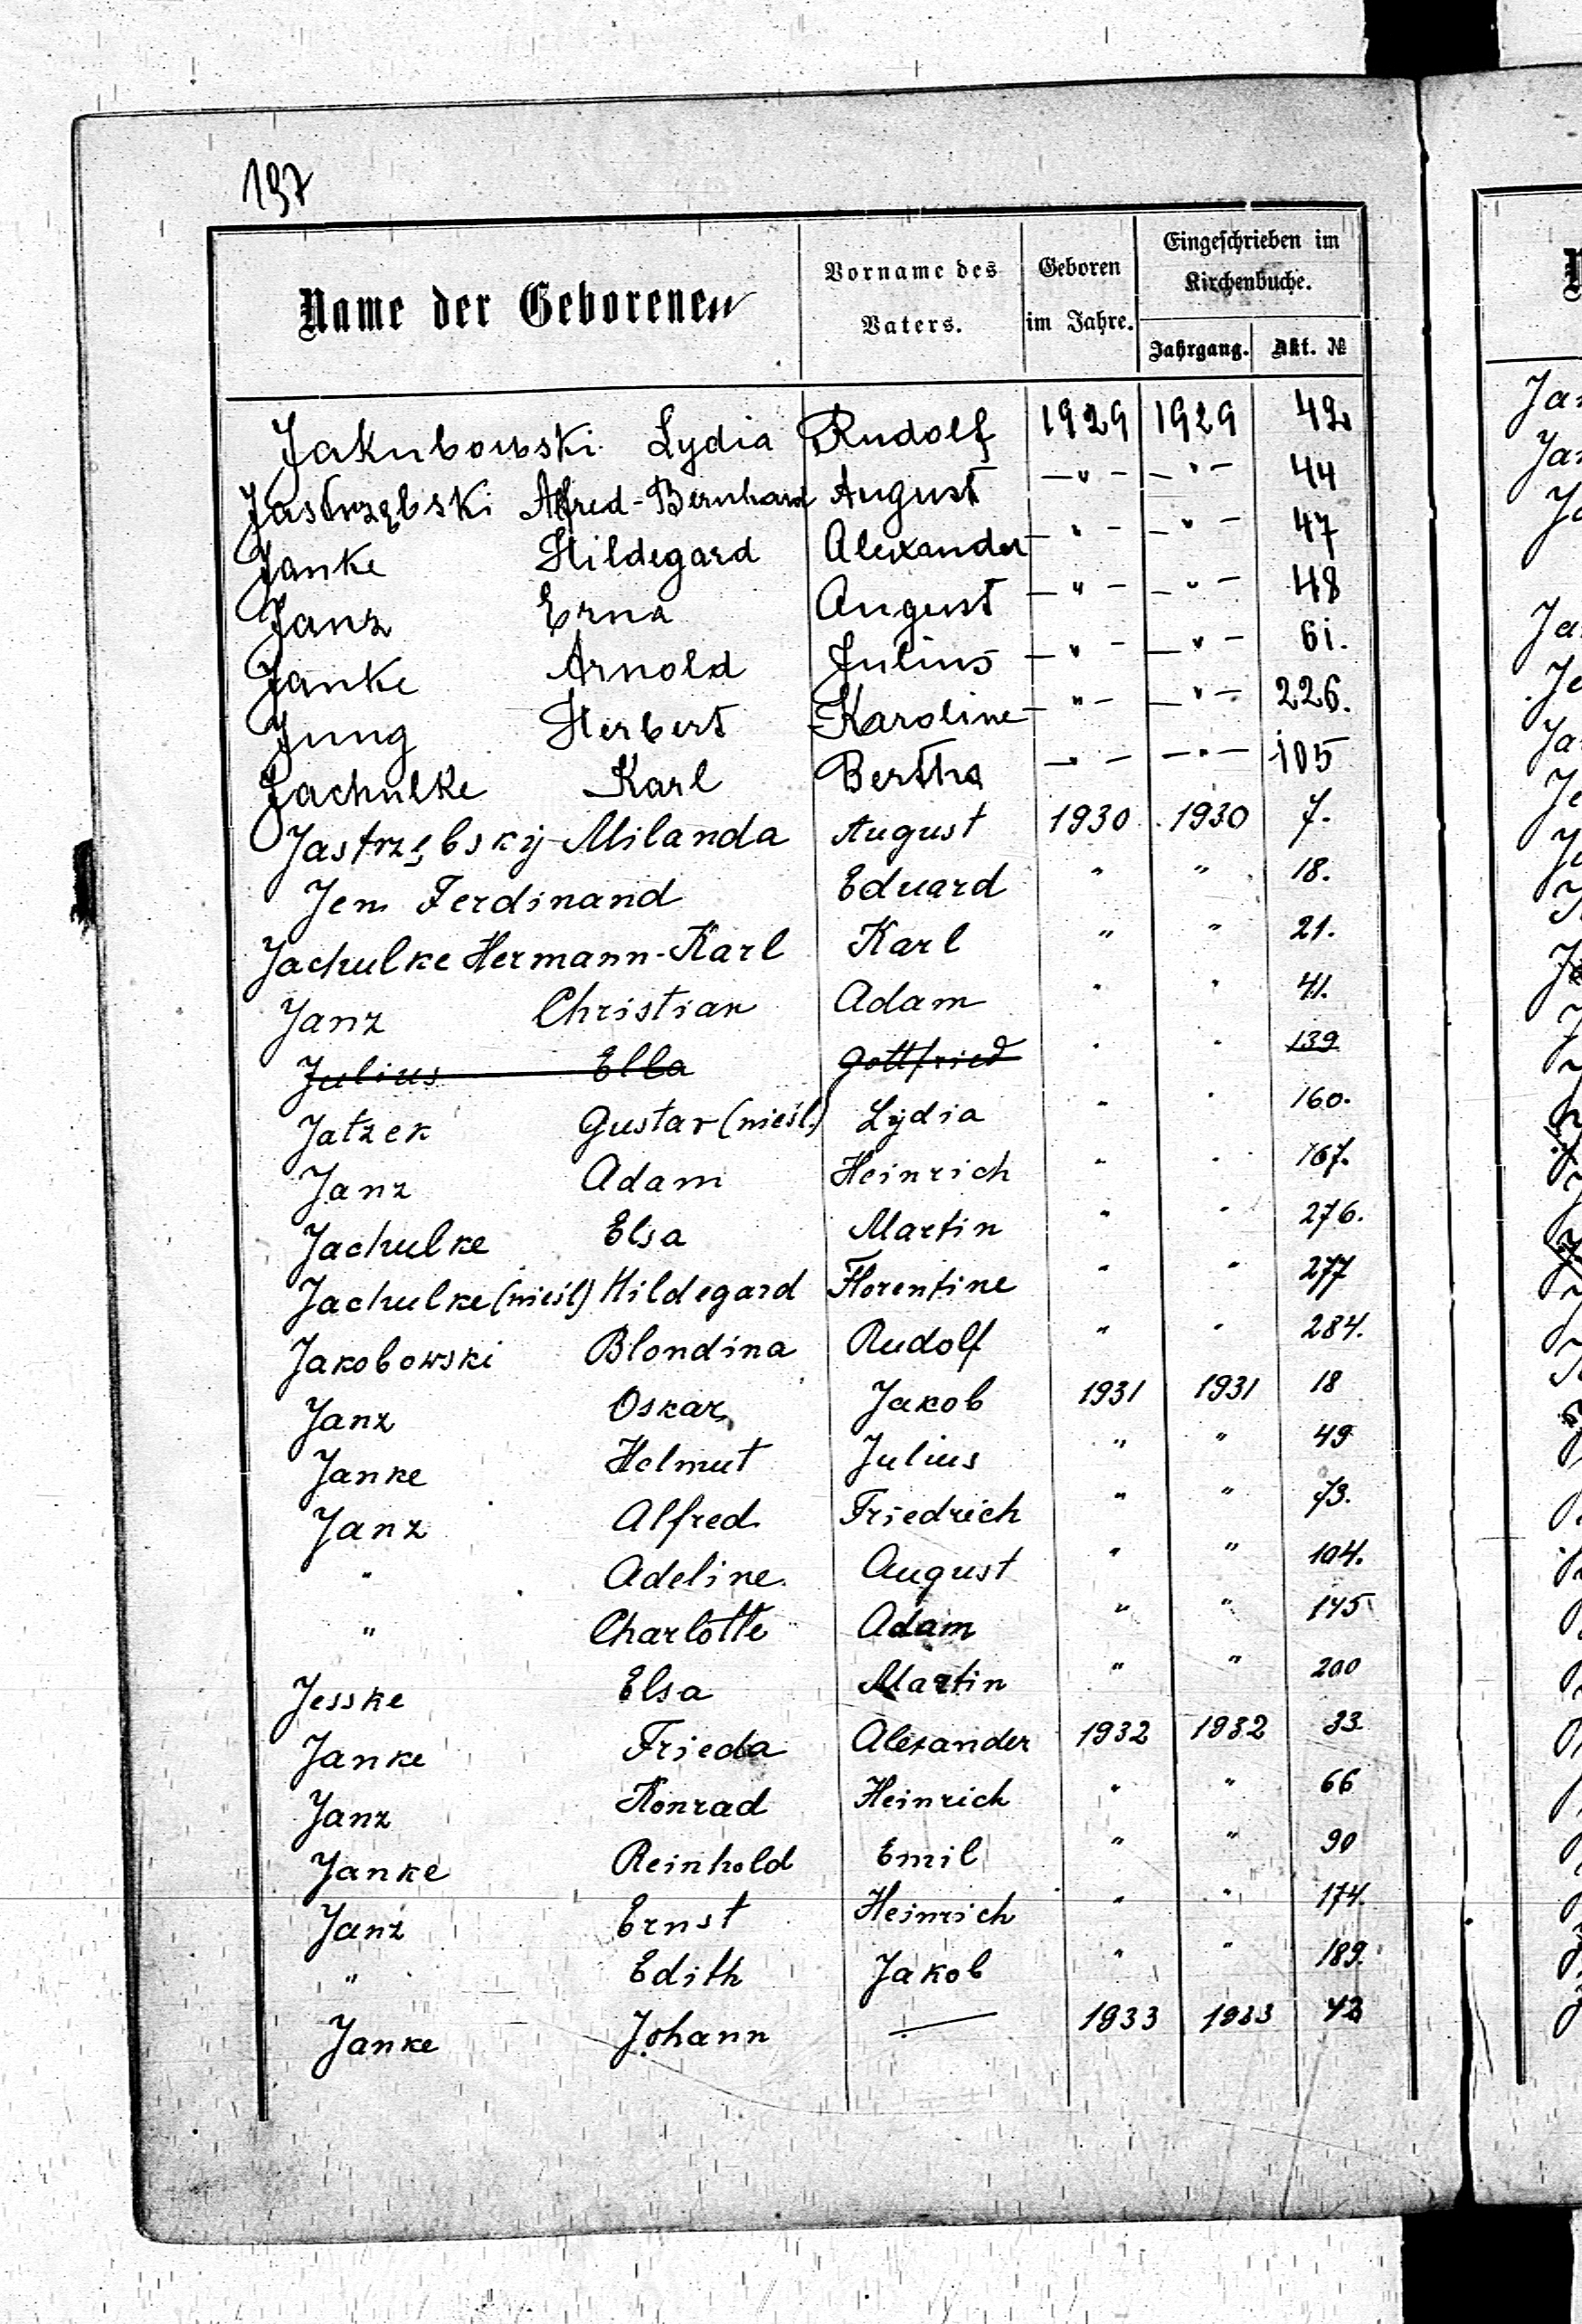 197
Name der Geborenen
Vorname des Vaters.
Geboren im Jahre.
Eingeschrieben im Kirchenbuche.
Jahrgang. Akt. №
Jakubowski Lydia Rudolf 1929 1929 42
Jastrzębski Alfred-Bernhard August —"— —"— 44
Janke Hildegard Alexander —"— —"— 47
Janz Erna August —"— —"— 48
Janke Arnold Julius —"— —"— 61.
Jung Herbert Karoline —"— —"— 226.
Jachulke Karl Bertha —"— —"— 105
Jastrzębskij Milanda August 1930 1930 7.
Jem Ferdinand Eduard " " 18.
Jachulke Hermann-Karl Karl " " 21.
Janz Christian Adam " " 41.
Julius Ella Gottfried " " 139
Jatzek Gustav (nieśl.) Lydia " " 160.
Janz Adam Heinrich " " 167.
Jachulke Elsa Martin " " 276.
Jachulke (nieśl) Hildegard Florentine " " 277
Jakobowski Blondina Rudolf " " 284.
Janz Oskar Jakob 1931 1931 18
Janke Helmut Julius " " 49
Janz Alfred Friedrich " " 73.
" Adeline August " " 104.
" Charlotte Adam " " 145
Jesske Elsa Martin " " 200
Janke Frieda Alexander 1932 1932 33
Janz Konrad Heinrich " " 66
Janke Reinhold Emil " " 90
Janz Ernst Heinrich " " 174.
" Edith Jakob " " 189.
Janke Johann — 1933 1933